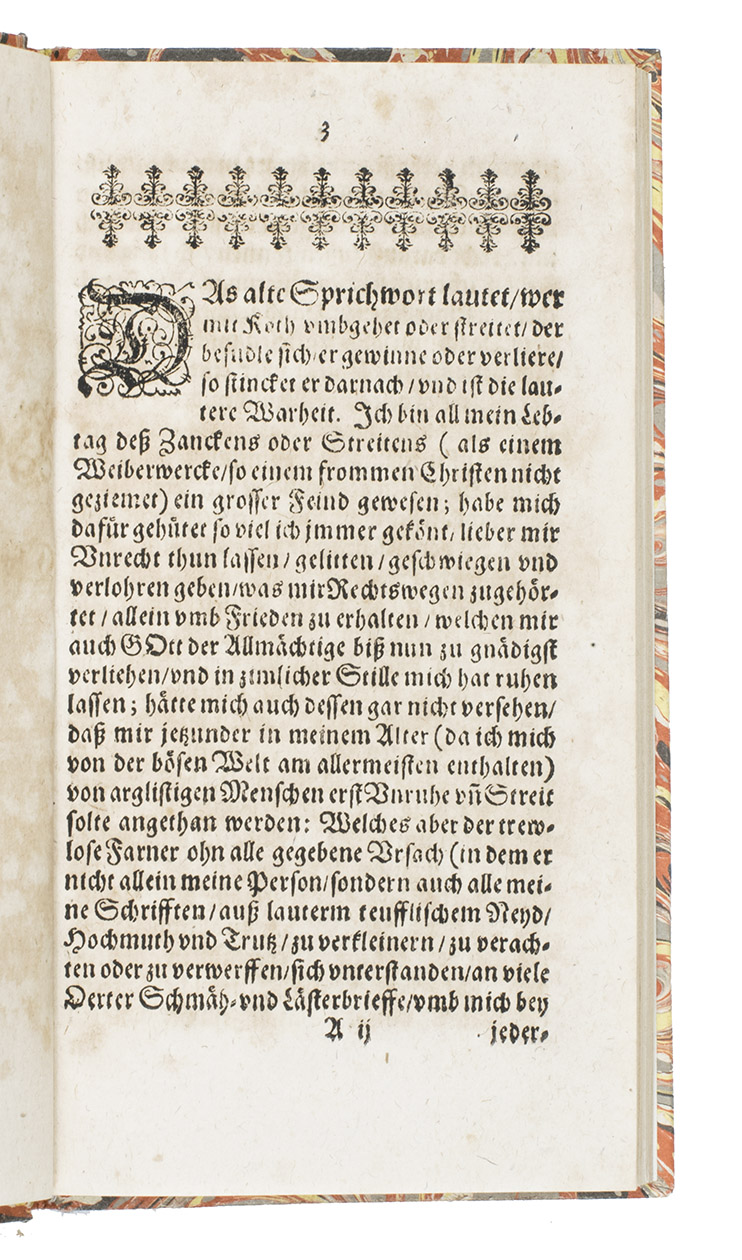 3
DAs alte Sprichwort lautet/wer
mit Koth vmbgehet oder streitet/der
besudle sich/er gewinne oder verliere/
so stincket er darnach/vnd ist die lau-
tere Warheit. Ich bin all mein Leb-
tag deß Zanckens oder Streitens (als einem
Weiberwercke/so einem frommen Christen nicht
geziemet) ein grosser Feind gewesen; habe mich
dafür gehütet so viel ich jmmer gekönt/lieber mir
Vnrecht thun lassen/gelitten/geschwiegen vnd
verlohren geben/was mir Rechtswegen zugehör-
tet/allein vmb Frieden zu erhalten/welchen mir
auch GOtt der Allmächtige biß nun zu gnädigst
verliehen/vnd in zimlicher Stille mich hat ruhen
lassen; hätte mich auch dessen gar nicht versehen/
daß mir jetzunder in meinem Alter (da ich mich
von der bösen Welt am allermeisten enthalten)
von arglistigen Menschen erst Vnruhe vñ Streit
solte angethan werden: Welches aber der trew-
lose Farner ohn alle gegebene Vrsach (in dem er
nicht allein meine Person/sondern auch alle mei-
ne Schrifften/auß lauterm teufflischem Neyd/
Hochmuth vnd Trutz/zu verkleinern/zu verach-
ten oder zu verwerffen/sich vnterstanden/an viele
Oerter Schmäh- vnd Lästerbrieffe/vmb mich bey
A ij jeder-